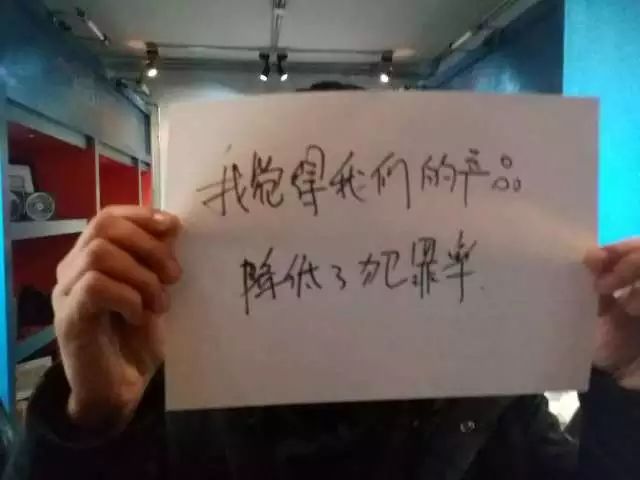 我觉得我们的产品
降低了犯罪率